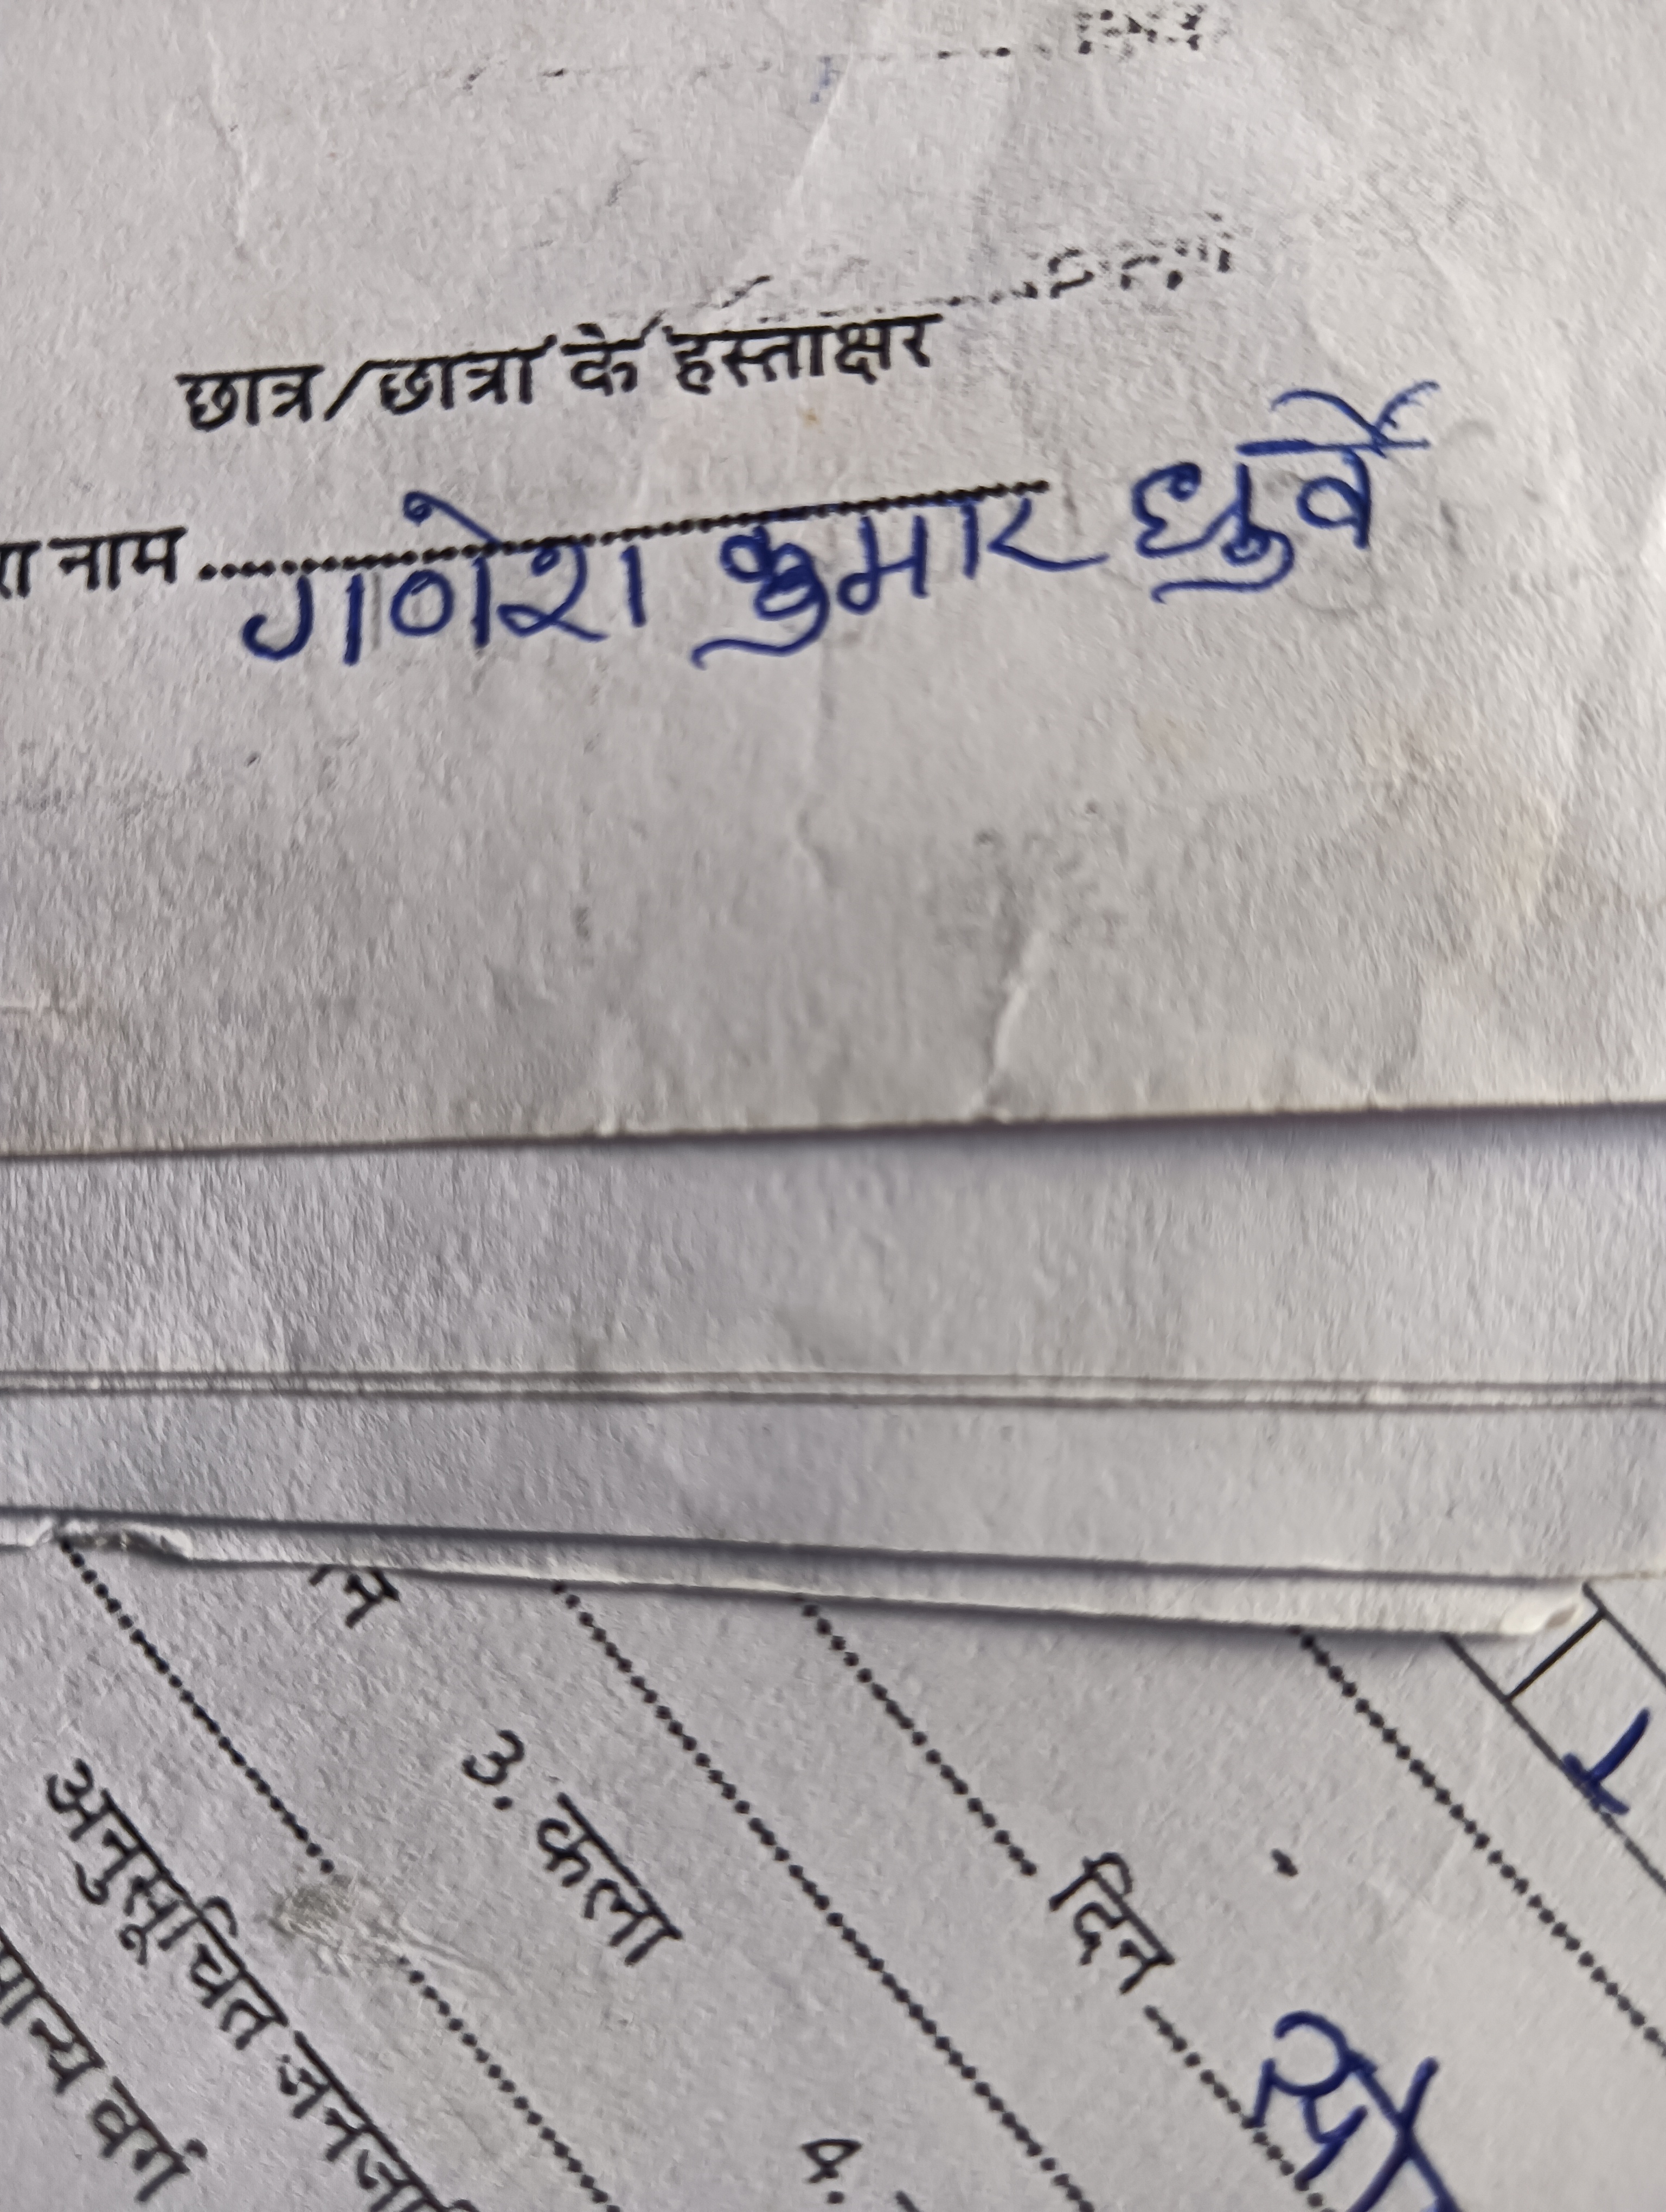 छात्र/छात्रा के हस्ताक्षर
नाम.......................... गणेश कुमार धुर्वे
3. कला
दिन
अनुसूचित
वर्ग
4.